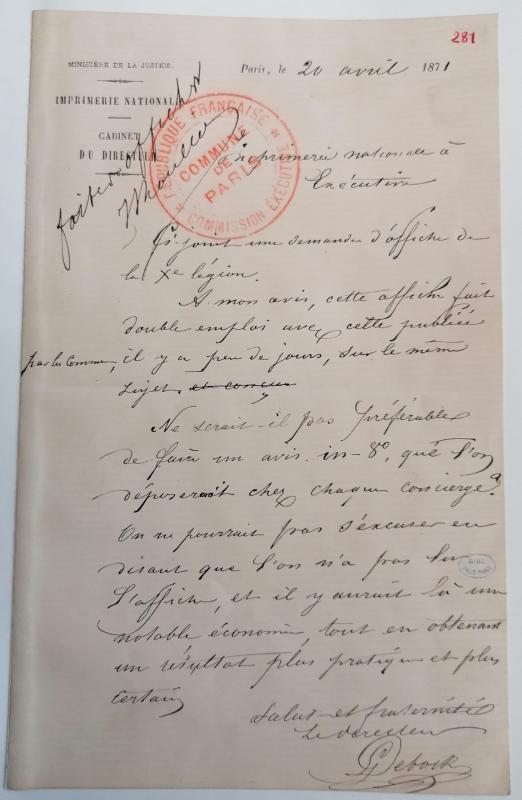 281
MINISTÈRE DE LA JUSTICE.
Paris, le 20 avril 1871
IMPRIMERIE NATIONALE
CABINET
DU DIRECTEUR
faites afficher
RÉPUBLIQUE FRANÇAISE
COMMUNE
DE
PARIS
COMMISSION EXÉCUTIVE
Imprimerie nationale à
Exécutive
Ci-joint une demande d'affiche de
la Xe légion.
A mon avis, cette affiche fait
double emploi avec cette publiée
par la Commune, il y a peu de jours, sur le même
sujet
Ne serait-il pas préférable
de faire un avis in-8o, que l'on
déposerait chez chaque concierge?
On ne pourrait pas s'excuser en
disant que l'on n'a pas lu
l'affiche, et il y aurait là une
notable économie, tout en obtenant
un résultat plus pratique et plus
certain
Salut et fraternité
Le directeur
Debock